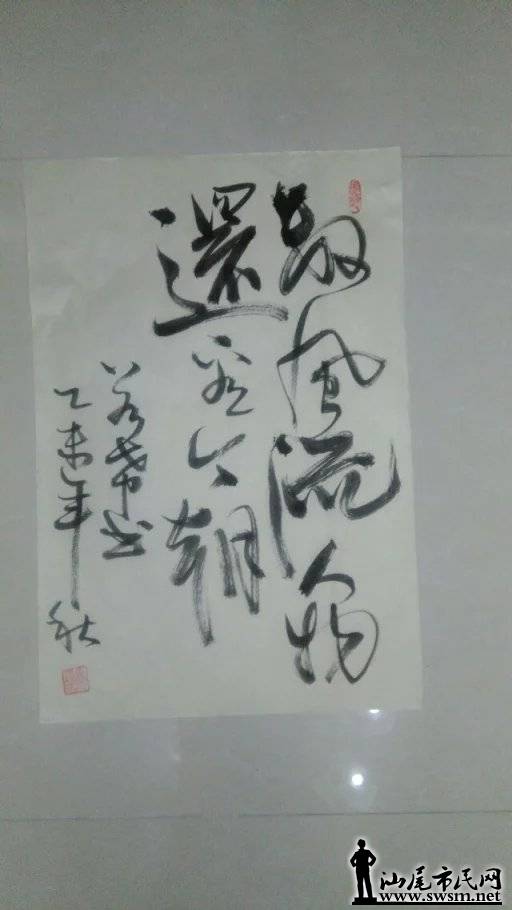 数風流人物
還看今朝
若希书
乙未年秋
汕尾市民网
www.swsm.net